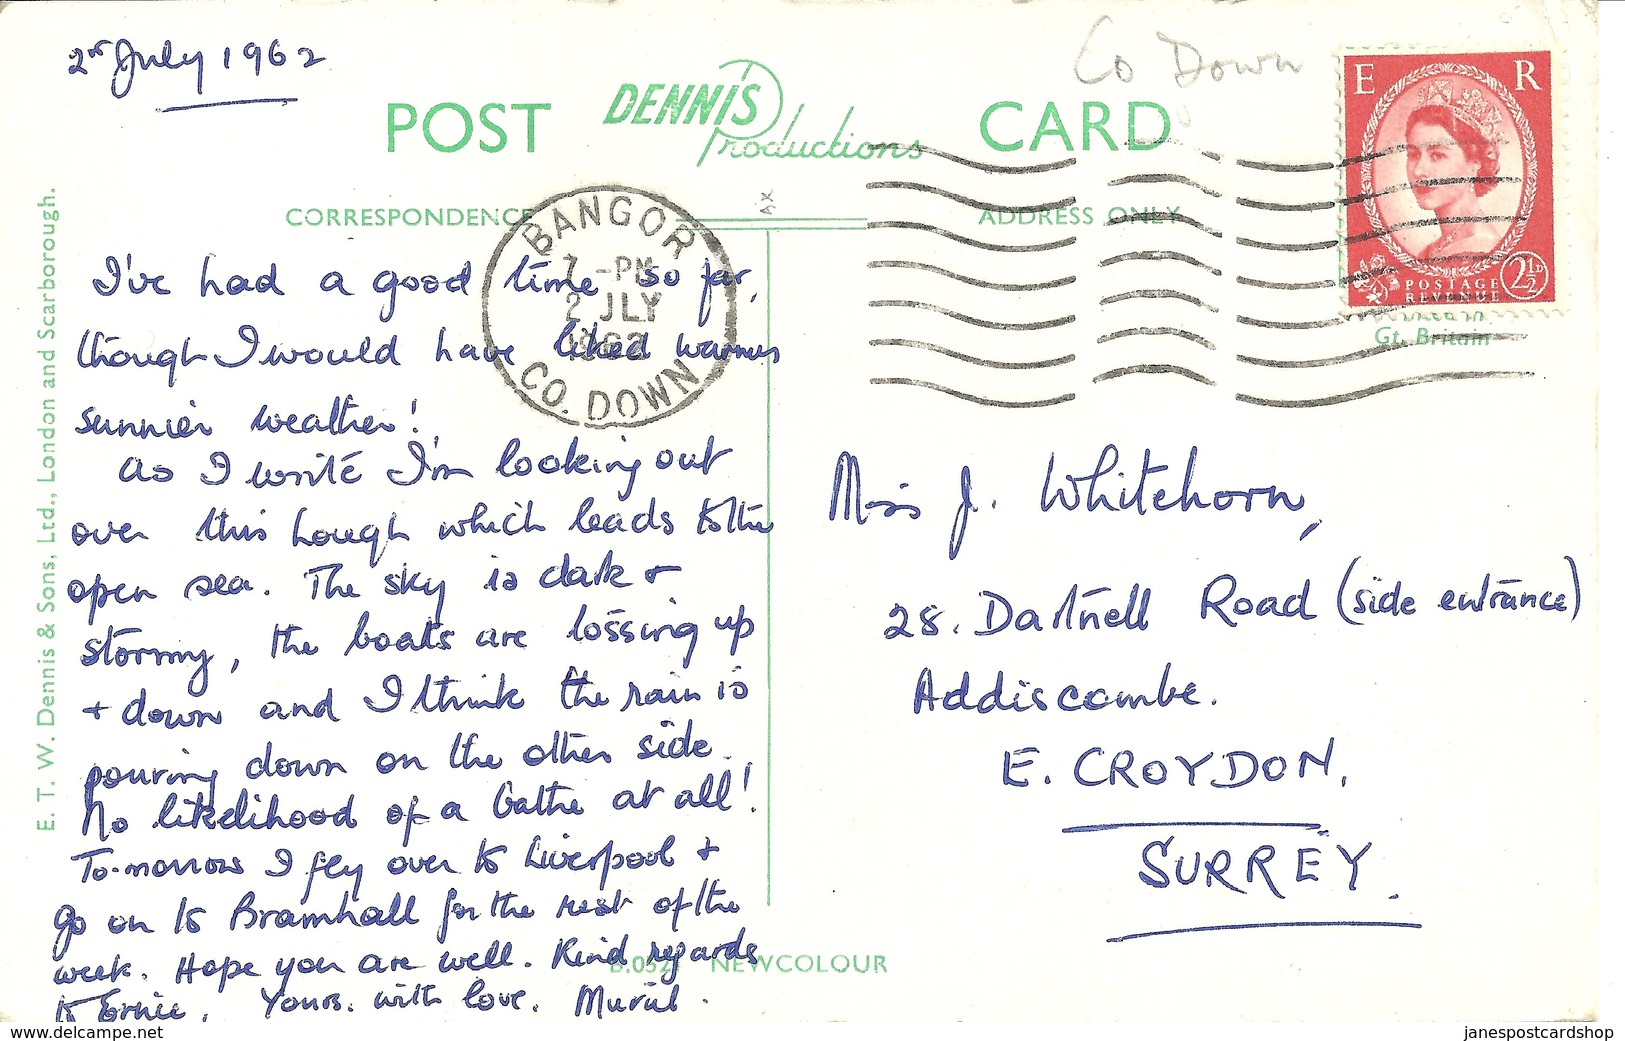 2nd July 1962
Co Down
E R
POST DENNIS Productions CARD
POSTAGE REVENUE 2½D
CORRESPONDENCE
ADDRESS ONLY
Gt. Britain
BANGOR
7 -PM
2 JLY
1962
CO. DOWN
E. T. W. Dennis & Sons, Ltd., London and Scarborough.
I've had a good time so far,
though I would have liked warmer
sunnier weather!
As I write I'm looking out
over this Lough which leads to the
open sea. The sky is dark +
stormy, the boats are tossing up
+ down and I think the rain is
pouring down on the other side.
No likelihood of a bathe at all!
To-morrow I fly over to Liverpool +
go on to Bramhall for the rest of the
week. Hope you are well. Kind regards
to Ernie. Yours. with love. Muriel.
Miss J. Whitehorn,
28. Dartnell Road (side entrance)
Addiscombe.
E. CROYDON,
SURREY.
NEWCOLOUR
www.delcampe.net
janespostcardshop